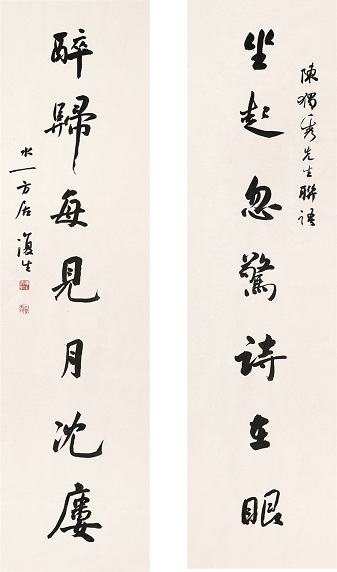 陳獨秀先生聯語
坐起忽驚詩在眼
醉歸每見月沈廔
水一方居復生